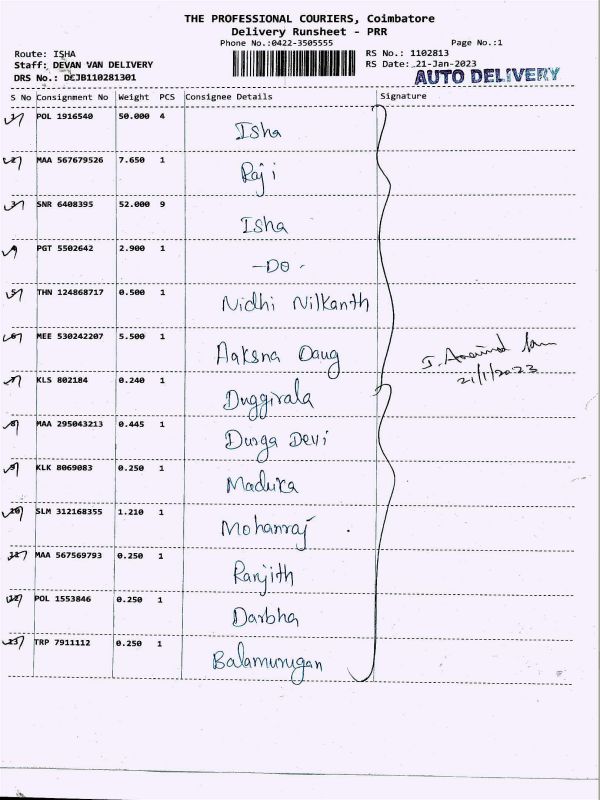 THE PROFESSIONAL COURIERS, Coimbatore
Delivery Runsheet - PRR
Phone No.:0422-3505555 Page No.:1
Route: ISHA RS No.: 1102813
Staff: DEVAN VAN DELIVERY RS Date: 21-Jan-2023
DRS No.: DEJB110281301 AUTO DELIVERY
S No Consignment No Weight PCS Consignee Details Signature
1 POL 1916540 50.000 4 Isha
2 MAA 567679526 7.650 1 Raji
3 SNR 6408395 52.000 9 Isha
4 PGT 5502642 2.900 1 -DO-
5 THN 124868717 0.500 1 Nidhi Nilkanth
6 MEE 530242207 5.500 1 Aaksna Daug
J. Aravind
21/1/2023
7 KLS 802184 0.240 1 Duggirala
8 MAA 295043213 0.445 1 Durga Devi
9 KLK 8069083 0.250 1 Madhika
10 SLM 312168355 1.210 1 Mohanraj
11 MAA 567569793 0.250 1 Ranjith
12 POL 1553846 0.250 1 Darbha
13 TRP 7911112 0.250 1 Balamurugan